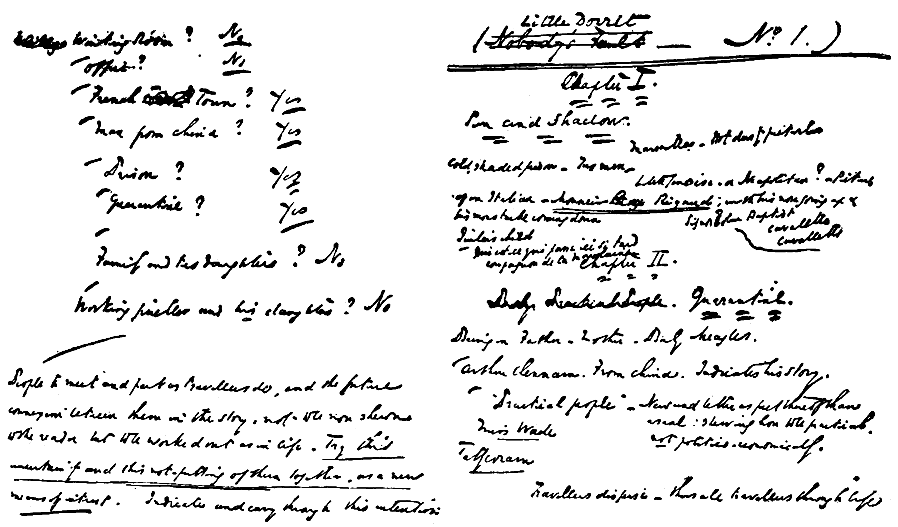 Waiting Room? No
Office? No
French Town? Yes
Man from China? Yes
Prison? Yes
Quarantine? Yes
Family and two daughters? No
Working jeweller and his daughter? No
People to meet and part as travellers do, and the future
connexion between them in the story, not to be now shewn
to the reader but to be worked out as in life. Try this
uncertainty and this not-putting of them together, as a new
means of interest. Indicate and carry through this intention
Little Dorrit
(Nobody's Fault — No. 1.)
Chapter I.
Sun and Shadow.
Marseilles - Hot dusty
Cold, shaded prison - Two men
a Neapolitan? -
an Italian - Monsieur Rigaud; with his nose going up &
his moustache coming down
Signor John Baptist
Cavalletto
Cavalletto
Jailer's child
Qui est-ce qui passe ici si tard
compagnon de la Marjolaine
Chapter II.
Practical People. Quarantine.
Father - Mother - Baby Meagles.
Arthur Clennam. From China. Indicate his story.
"Practical people" -
usual: shewing how the practical.
not politico-economically.
Miss Wade
Tattycoram
Travellers disperse - thus all travellers through life